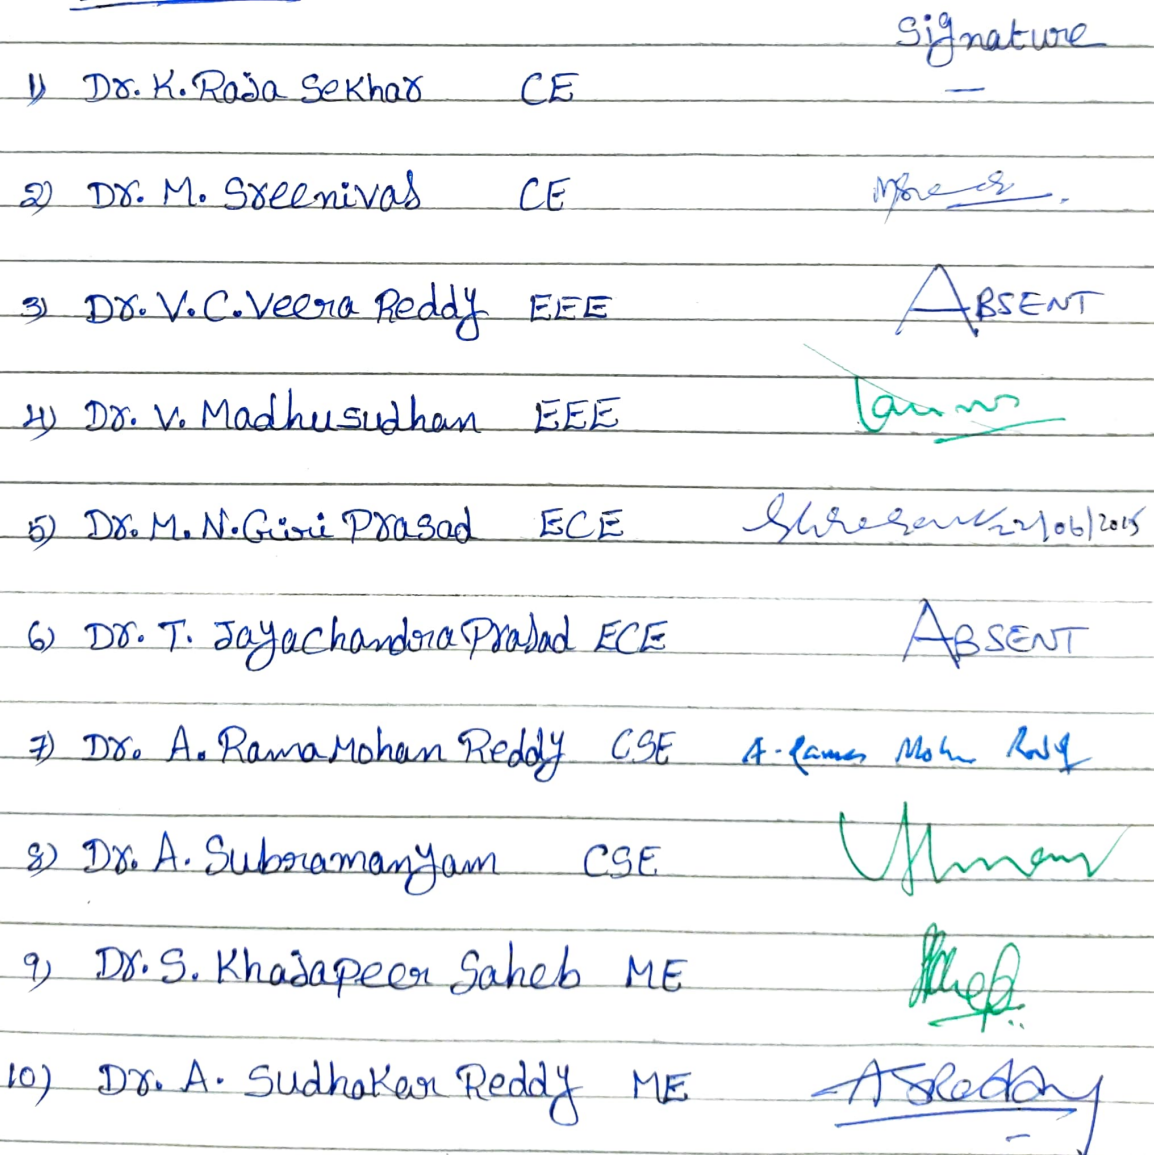 Signature
1) Dr. K. Raja Sekhar CE —
2) Dr. M. Sreenivas CE
3) Dr. V. C. Veera Reddy EEE ABSENT
4) Dr. V. Madhusudhan EEE
5) Dr. M. N. Giri Prasad ECE
6) Dr. T. Jayachandra Prasad ECE ABSENT
7) Dr. A. Rama Mohan Reddy CSE A. Rama Mohan Reddy
8) Dr. A. Subramanyam CSE
9) Dr. S. Khajapeer Saheb ME
10) Dr. A. Sudhakar Reddy ME ASReddy